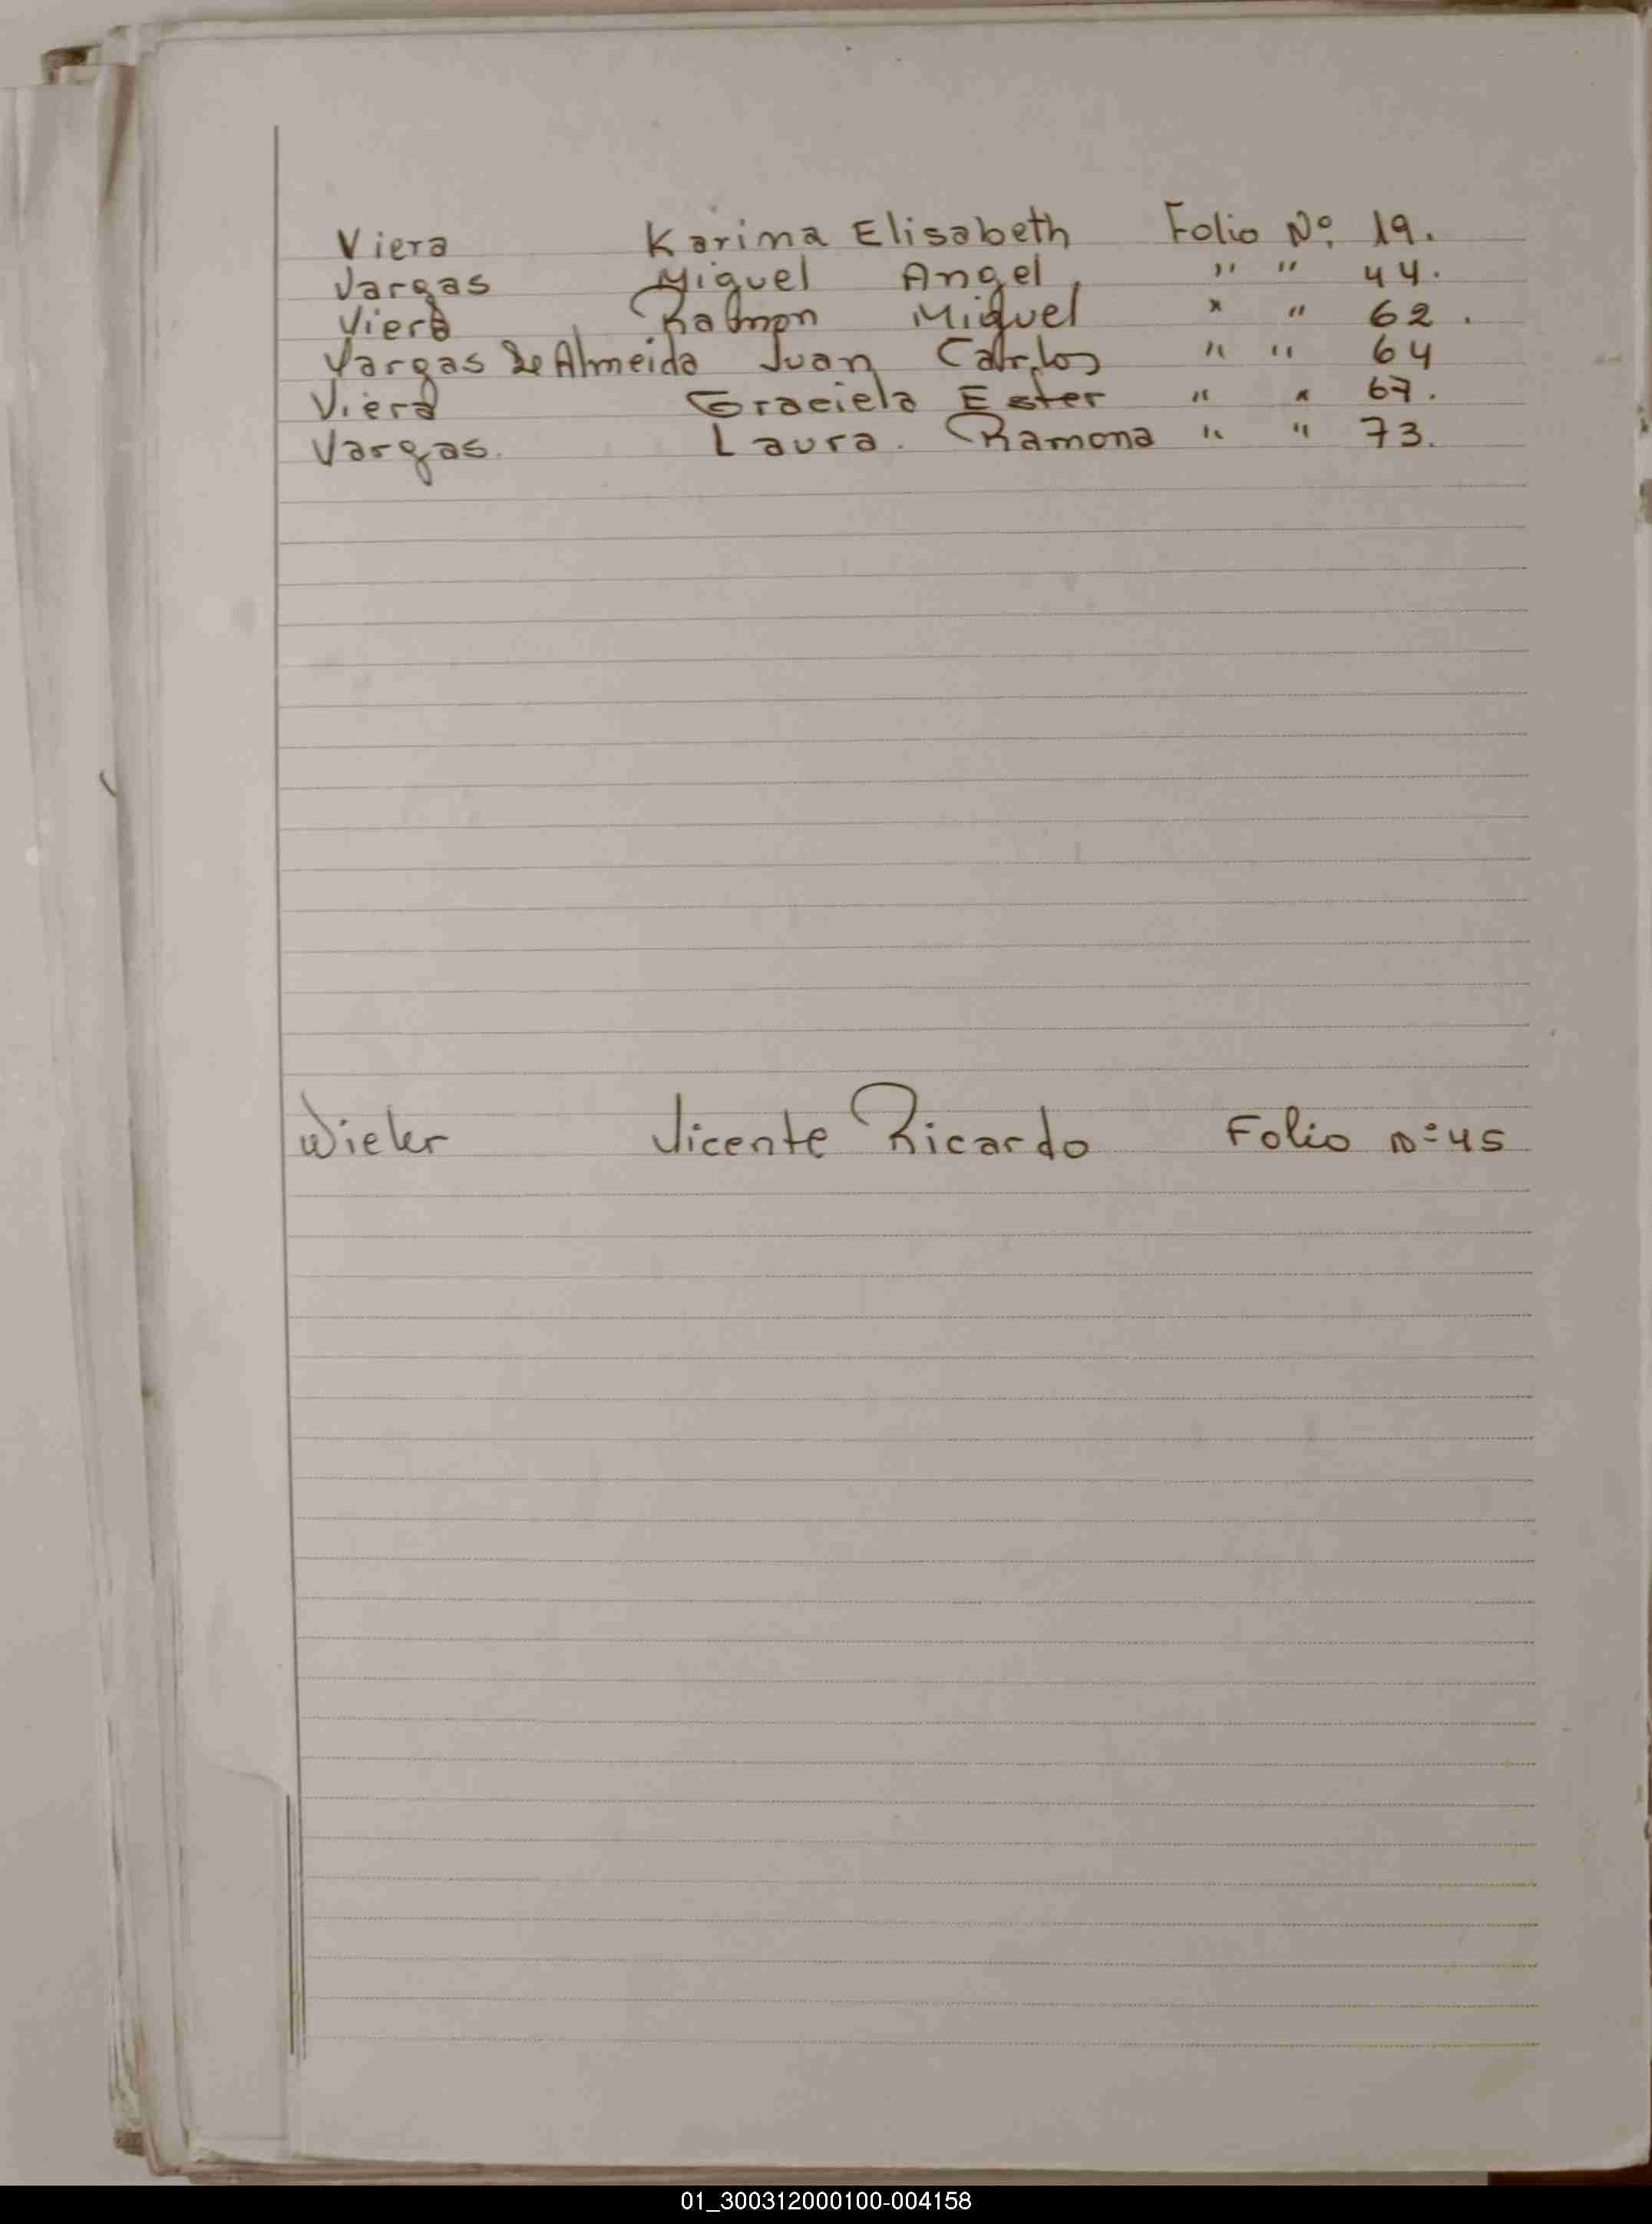 Viera Karina Elisabeth Folio Nº 19.
Vargas Miguel Angel " " 44.
Viera Ramon Miguel " " 62.
Vargas De Almeida Juan Carlos " " 64
Viera Graciela Ester " " 67.
Vargas. Laura. Ramona " " 73.
Wieler Vicente Ricardo Folio Nº 45
01_300312000100-004158